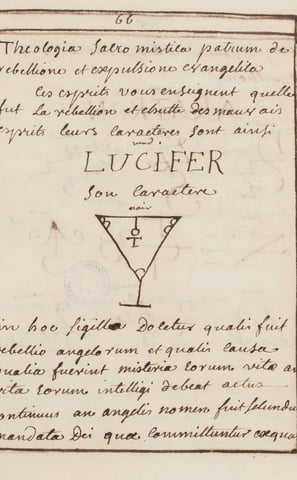 66
Theologia Sacro mistica patrum de
rebellione et expulsione evangelica
Ces esprits vous enseignent quelle
fut La rebellion et chutte des mauvais
esprits leurs caracteres sont ainsi
LUCIFER
Son Caractere
noir
in hoc sigillo Docetur qualis fuit
rebellio angelorum et qualis causa
qualia fuerint misteria eorum vitæ an
vita eorum intelligi debeat actus
continuus an angelis nomen fuit secundum
mandata Dei quæ committuntur exequa